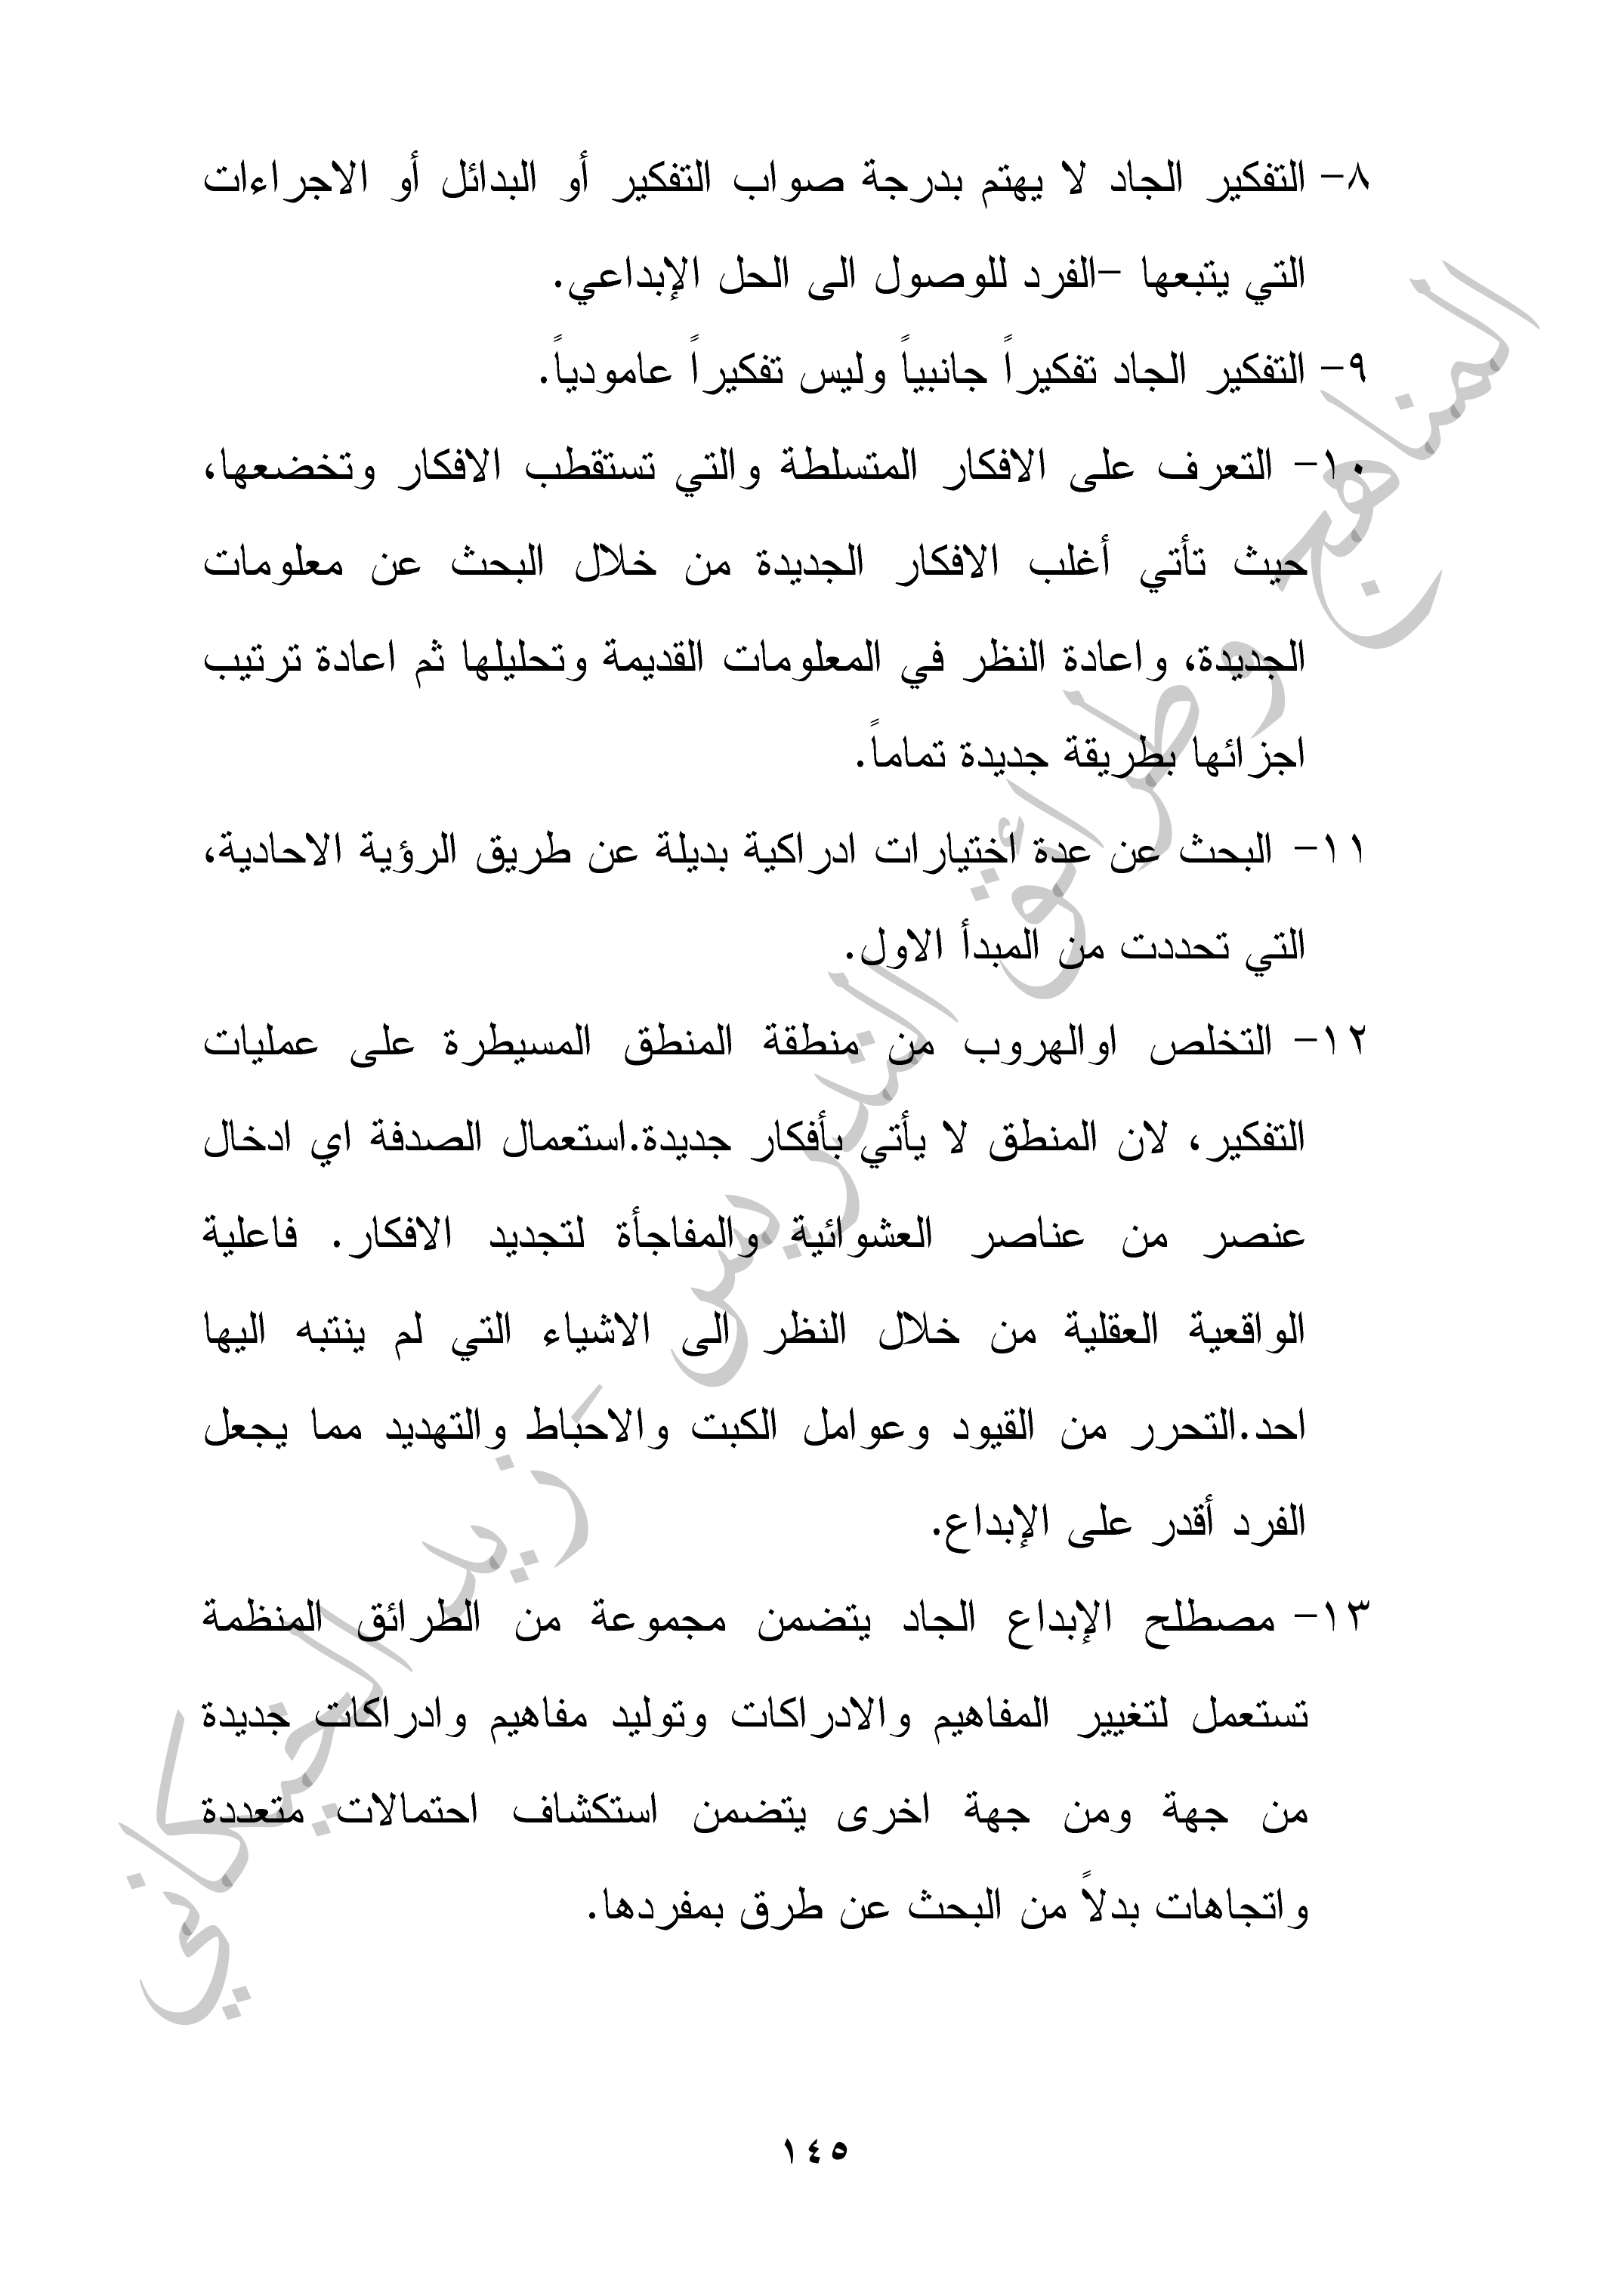 ٨- التفكير الجاد لا يهتم بدرجة صواب التفكير أو البدائل أو الاجراءات
التي يتبعها -الفرد للوصول الى الحل الإبداعي.
٩- التفكير الجاد تفكيراً جانبياً وليس تفكيراً عامودياً.
١٠- التعرف على الافكار المتسلطة والتي تستقطب الافكار وتخضعها،
حيث تأتي أغلب الافكار الجديدة من خلال البحث عن معلومات
الجديدة، واعادة النظر في المعلومات القديمة وتحليلها ثم اعادة ترتيب
اجزائها بطريقة جديدة تماماً.
١١- البحث عن عدة اختيارات ادراكية بديلة عن طريق الرؤية الاحادية،
التي تحددت من المبدأ الاول.
١٢- التخلص اوالهروب من منطقة المنطق المسيطرة على عمليات
التفكير، لان المنطق لا يأتي بأفكار جديدة.استعمال الصدفة اي ادخال
عنصر من عناصر العشوائية والمفاجأة لتجديد الافكار. فاعلية
الواقعية العقلية من خلال النظر الى الاشياء التي لم ينتبه اليها
احد.التحرر من القيود وعوامل الكبت والاحباط والتهديد مما يجعل
الفرد أقدر على الإبداع.
١٣- مصطلح الإبداع الجاد يتضمن مجموعة من الطرائق المنظمة
تستعمل لتغيير المفاهيم والادراكات وتوليد مفاهيم وادراكات جديدة
من جهة ومن جهة اخرى يتضمن استكشاف احتمالات متعددة
واتجاهات بدلاً من البحث عن طرق بمفردها.
المناهج وطرائق التدريس - زيد الخيكاني
١٤٥